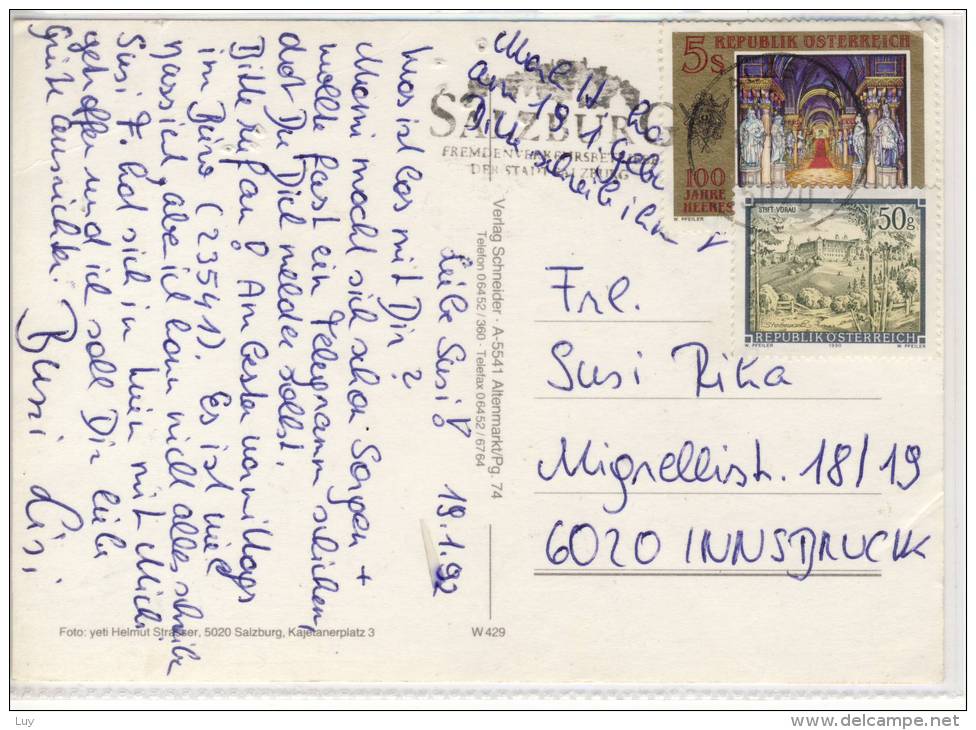 19.1.92
Liebe Susi!
Was ist los mit Dir?
Mami macht sich schon Sorgen +
wollte fast ein Telegramm schicken,
daß Du Dich melden sollst.
Bitte ruf an! Am besten vormittags
im Büro (23541). Es ist viel
passiert, aber ich kann nicht alles schreiben
Susi F. hat sich in Wien mit Michi
getroffen und ich soll Dir liebe
Grüße ausrichten
Bussi Lisi
am 19.1. Geb.
Bitte schreib ihm!
Frl.
Susi Rika
Mignellistr. 18/19
6020 INNSBRUCK
SALZBURG
FREMDENVERKEHRSBETRIEBE
DER STADT SALZBURG
5S REPUBLIK ÖSTERREICH
100
JAHRE
HEERES
W. PFEILER
STIFT VORAU
50g
REPUBLIK ÖSTERREICH
W. PFEILER 1990 W. PFEILER
Verlag Schneider · A-5541 Altenmarkt/Pg. 74
Telefon 06452/360 · Telefax 06452/6764
Foto: yeti Helmut Strasser, 5020 Salzburg, Kajetanerplatz 3
W 429
Luy
www.delcampe.net